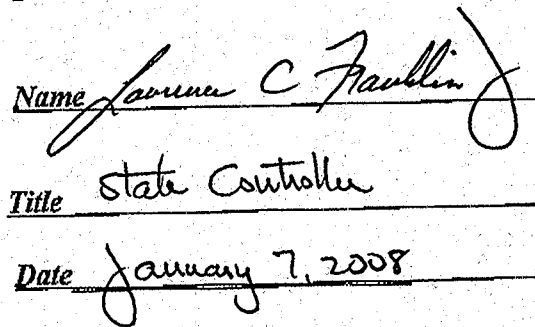 Name Laurence C Franklin J
Title State Controller
Date January 7, 2008